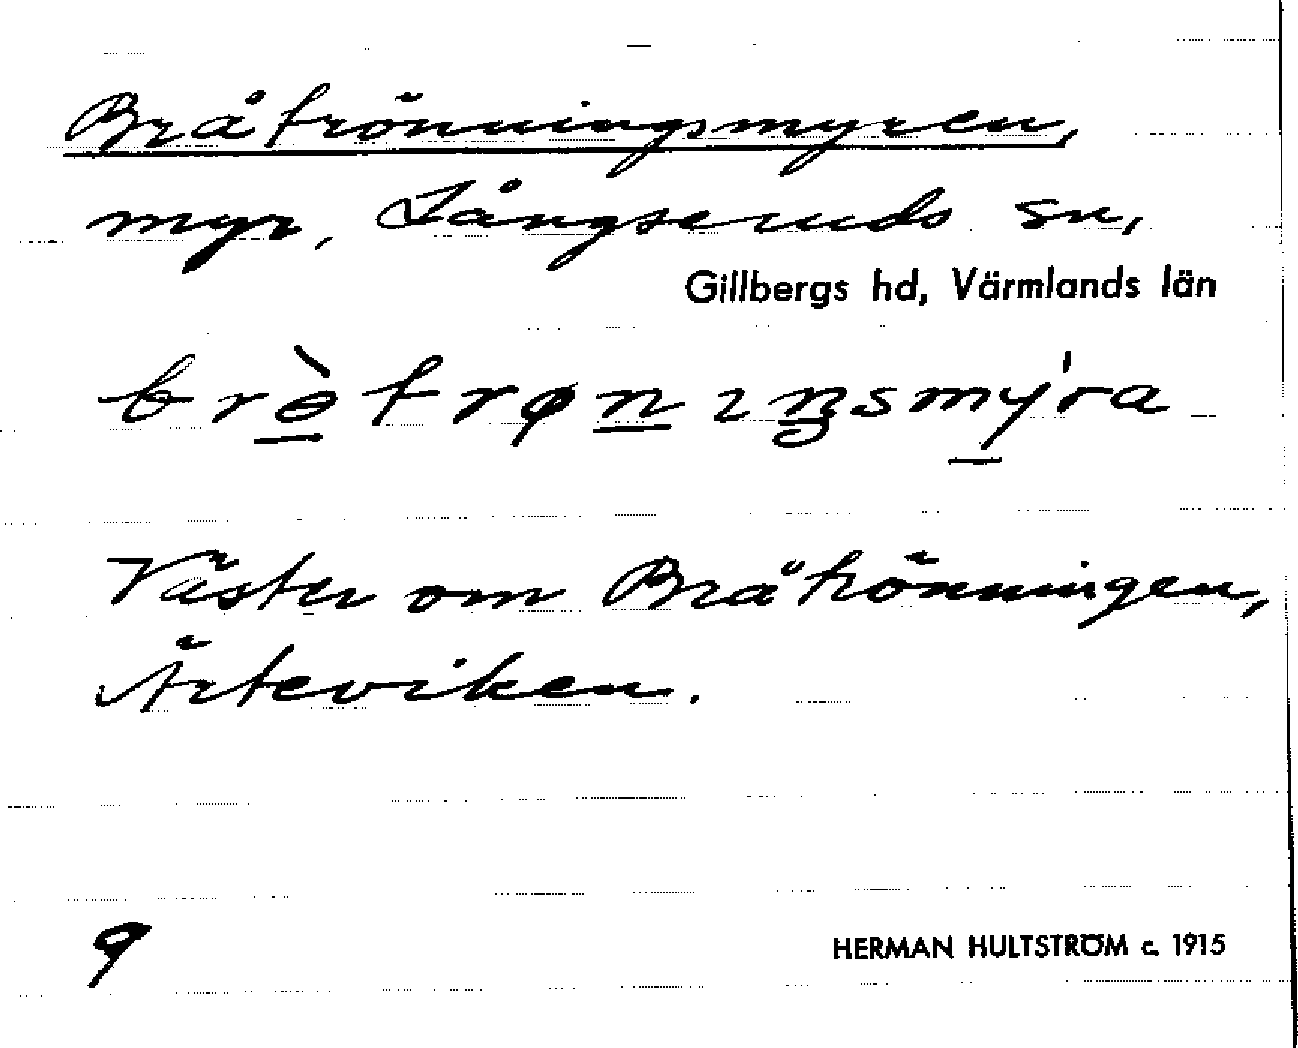 Bråtrönningsmyren,
myr, Långseruds sn,
Gillbergs hd, Värmlands län
Väster om Bråtrönningen,
Ärteviken.
9
HERMAN HULTSTRÖM c. 1915